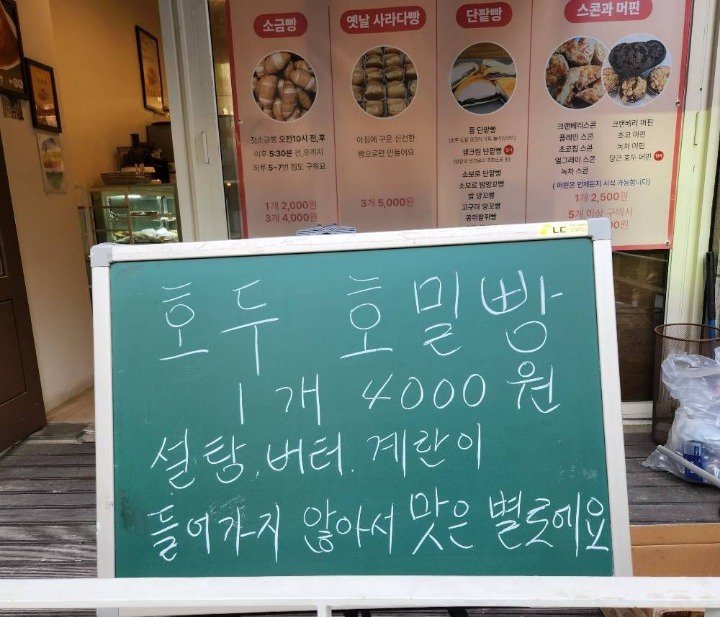 소금빵
옛날 사라다빵
단팥빵
스콘과 머핀
첫소금빵 오전10시 전,후
이후 5:30분 전,후까지
하루 5~7번 정도 구워요
1개 2,000원
3개 4,000원
아침에 구운 신선한
빵으로만 만들어요
3개 5,000원
통 단팥빵
생크림 단팥빵
소보로 단팥빵
소보로 밤팡꼬빵
밤 앙꼬빵
고구마 앙꼬빵
크랜베리스콘
플레인 스콘
초코칩 스콘
얼그레이 스콘
녹차 스콘
크랜베리 머핀
초코 머핀
녹차 머핀
당근 호두 머핀
(머핀은 언제든지 시식 가능합니다)
1개 2,500원
5개 이상 구매시
LC
호두 호밀빵
1개 4000원
설탕.버터.계란이
들어가지 않아서 맛은 별로에요